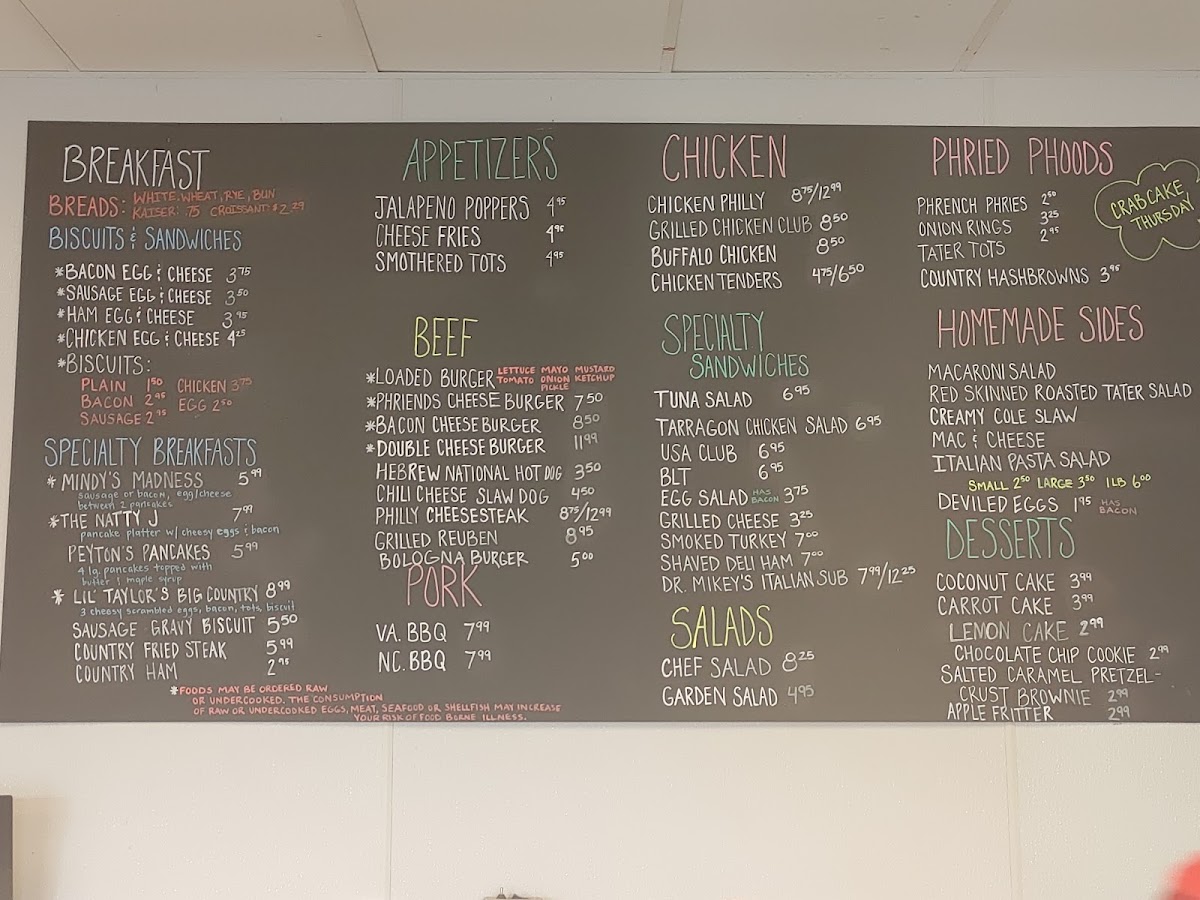 BREAKFAST
BREADS: WHITE, WHEAT, RYE, BUN
KAISER: .75 CROISSANT: $2.29
BISCUITS & SANDWICHES
*BACON EGG & CHEESE 3.75
*SAUSAGE EGG & CHEESE 3.50
*HAM EGG & CHEESE 3.95
*CHICKEN EGG & CHEESE 4.25
*BISCUITS:
PLAIN 1.50 CHICKEN 3.75
BACON 2.95 EGG 2.50
SAUSAGE 2.95
SPECIALTY BREAKFASTS
* MINDY'S MADNESS 5.99
sausage or bacon, egg/cheese
between 2 pancakes
*THE NATTY J 7.99
pancake platter w/ cheesy eggs & bacon
PEYTON'S PANCAKES 5.99
4 lg. pancakes topped with
butter & maple syrup
* LIL' TAYLOR'S BIG COUNTRY 8.99
3 cheesy scrambled eggs, bacon, tots, biscuit
SAUSAGE GRAVY BISCUIT 5.50
COUNTRY FRIED STEAK 5.99
COUNTRY HAM 2.95
*FOODS MAY BE ORDERED RAW
OR UNDERCOOKED. THE CONSUMPTION
OF RAW OR UNDERCOOKED EGGS, MEAT, SEAFOOD OR SHELLFISH MAY INCREASE
YOUR RISK OF FOOD BORNE ILLNESS.
APPETIZERS
JALAPENO POPPERS 4.95
CHEESE FRIES 4.95
SMOTHERED TOTS 4.95
BEEF
*LOADED BURGER LETTUCE MAYO MUSTARD
TOMATO ONION KETCHUP
PICKLE
*PHRIENDS CHEESE BURGER 7.50
*BACON CHEESEBURGER 8.50
*DOUBLE CHEESEBURGER 11.99
HEBREW NATIONAL HOT DOG 3.50
CHILI CHEESE SLAW DOG 4.50
PHILLY CHEESESTEAK 8.75/12.99
GRILLED REUBEN 8.95
BOLOGNA BURGER 5.00
PORK
VA. BBQ 7.99
NC. BBQ 7.99
CHICKEN
CHICKEN PHILLY 8.75/12.99
GRILLED CHICKEN CLUB 8.50
BUFFALO CHICKEN 8.50
CHICKEN TENDERS 4.75/6.50
SPECIALTY
SANDWICHES
TUNA SALAD 6.95
TARRAGON CHICKEN SALAD 6.95
USA CLUB 6.95
BLT 6.95
EGG SALAD HAS BACON 3.75
GRILLED CHEESE 3.25
SMOKED TURKEY 7.00
SHAVED DELI HAM 7.00
DR. MIKEY'S ITALIAN SUB 7.99/12.25
SALADS
CHEF SALAD 8.25
GARDEN SALAD 4.95
PHRIED PHOODS
CRABCAKE
THURSDAY
PHRENCH PHRIES 2.50
ONION RINGS 3.25
TATER TOTS 2.95
COUNTRY HASHBROWNS 3.95
HOMEMADE SIDES
MACARONI SALAD
RED SKINNED ROASTED TATER SALAD
CREAMY COLE SLAW
MAC & CHEESE
ITALIAN PASTA SALAD
SMALL 2.50 LARGE 3.50 1LB 6.00
DEVILED EGGS 1.95 HAS BACON
DESSERTS
COCONUT CAKE 3.99
CARROT CAKE 3.99
LEMON CAKE 2.99
CHOCOLATE CHIP COOKIE 2.99
SALTED CARAMEL PRETZEL-
CRUST BROWNIE 2.99
APPLE FRITTER 2.99